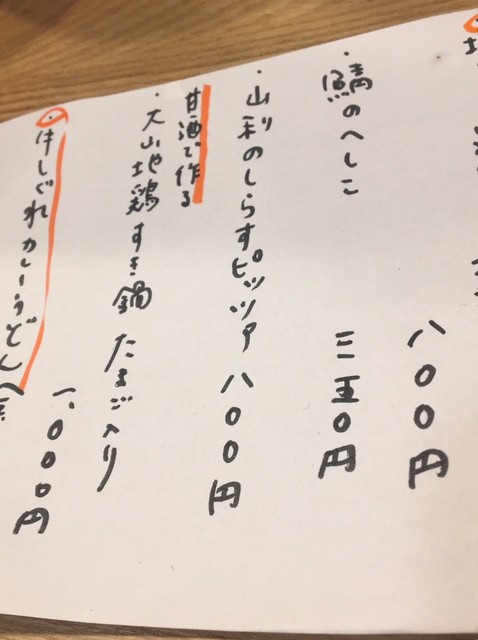 八〇〇円
・鯖のへしこ 三五〇円
・山利のしらすピッツァ 八〇〇円
甘酒で作る
・大山地鶏すき鍋 たまご入り
一、〇〇〇円
・牛しぐれカレーうどん